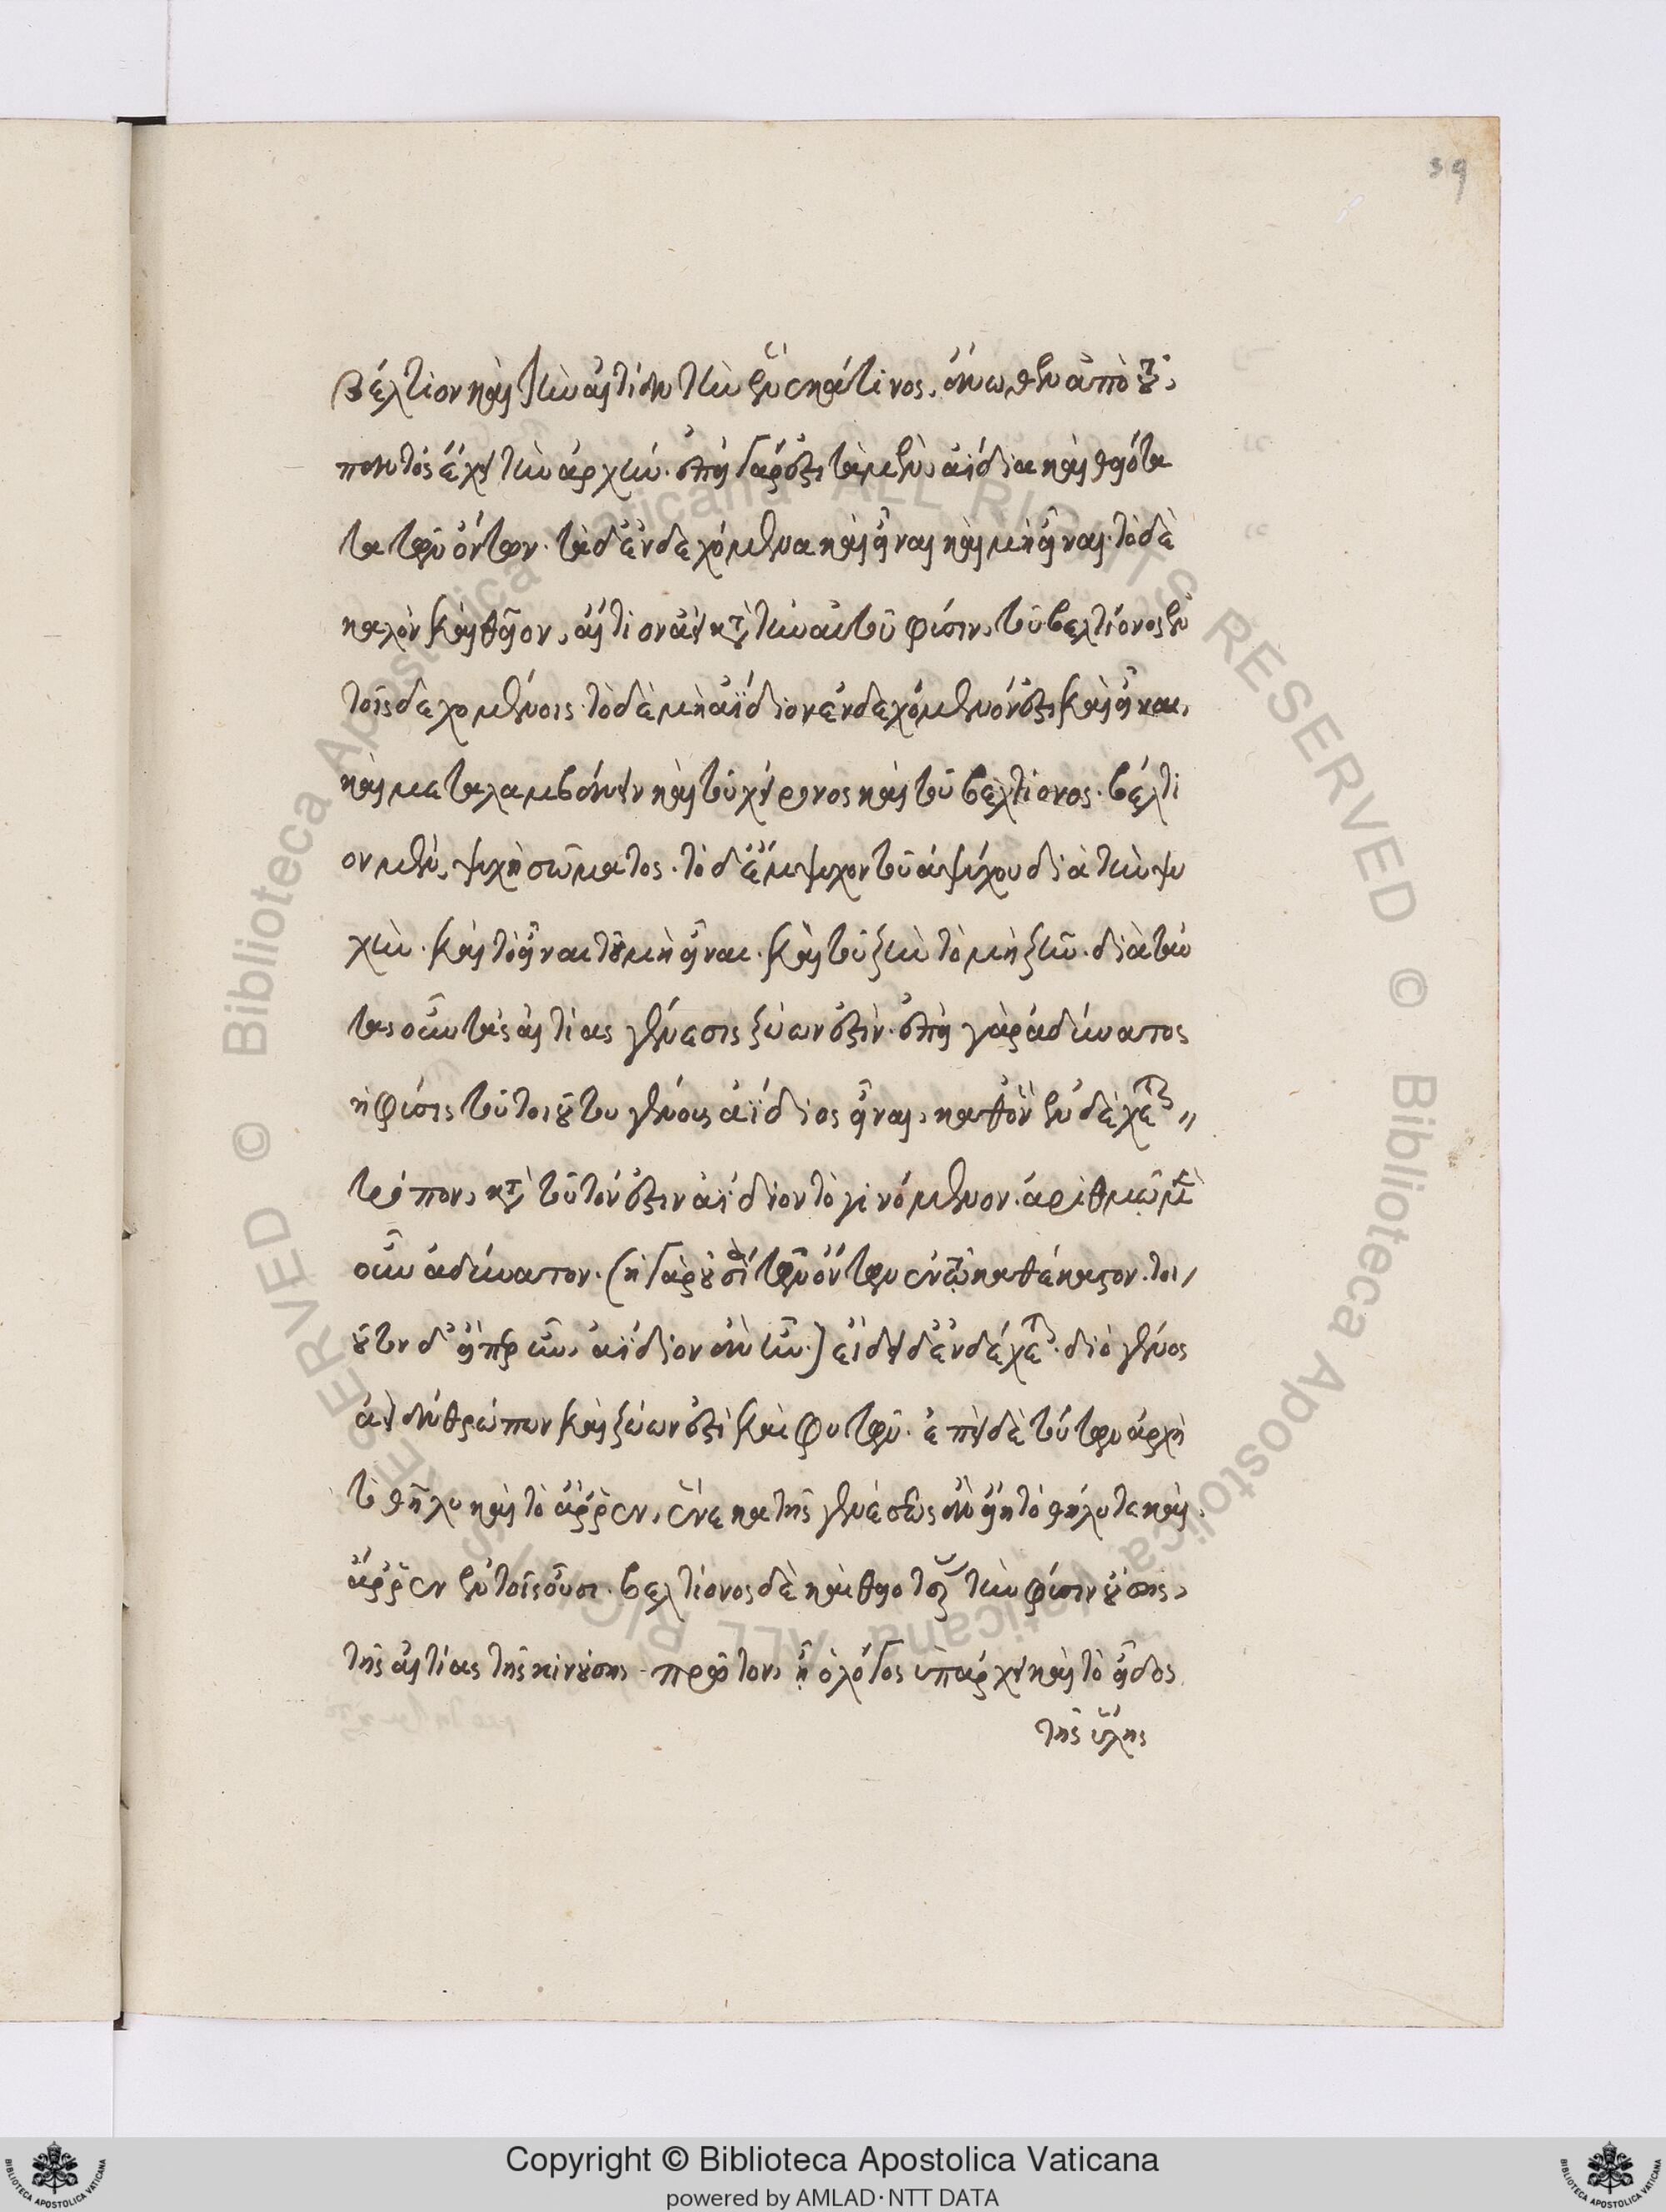 39
βέλτιον καὶ τὴν αἰτίαν τὴν ἕνεκά τινος, ἄνωθεν ἀπὸ τοῦ
παντός ἔχει τὴν ἀρχήν. ἐπεὶ γάρ ἐστι τὰ μὲν ἀΐδια καὶ θειότα
τα τῶν ὄντων. τὰ δ' ἐνδεχόμενα καὶ εἶναι καὶ μὴ εἶναι. τὸ δὲ
καλὸν καὶ θεῖον, αἴτιον ἀεὶ κατὰ τὴν αὑτοῦ φύσιν, τοῦ βελτίονος ἐν
τοῖς δεχομένοις. τὸ δὲ μὴ ἀΐδιον ἐνδεχόμενόν ἐστι καὶ εἶναι,
καὶ μεταλαμβάνειν καὶ τοῦ χείρονος καὶ τοῦ βελτίονος. βέλτι
ον μὲν, ψυχὴ σώματος. τὸ δ' ἔμψυχον τοῦ ἀψύχου διὰ τὴν ψυ
χὴν. καὶ τὸ εἶναι τοῦ μὴ εἶναι. καὶ τοῦ ζῆν τὸ μὴ ζῆν. διὰ ταύ
τας οὖν τὰς αἰτίας γένεσις ζώων ἐστὶν. ἐπεὶ γὰρ ἀδύνατος
ἡ φύσις τοῦ τοιούτου γένους ἀΐδιος εἶναι, καθ' ὃν ἐνδέχεται
τρόπον, κατὰ τοῦτόν ἐστιν ἀΐδιον τὸ γινόμενον. ἀριθμῷ μὲν
οὖν ἀδύνατον. (ἡ γὰρ οὐσία τῶν ὄντων ἐν τῷ καθ' ἕκαστον. τοι
οῦτον δ' εἴπερ ἦν, ἀΐδιον ἂν ἦν.) εἴδει δ' ἐνδέχεται. διὸ γένος
ἀεὶ ἀνθρώπων καὶ ζώων ἐστὶ καὶ φυτῶν. ἐπεὶ δὲ τούτων ἀρχὴ
τὸ θῆλυ καὶ τὸ ἄρρεν, ἕνεκα τῆς γενέσεως ἂν εἴη τὸ θῆλυ τε καὶ
ἄρρεν ἐν τοῖς οὖσι. βελτίονος δὲ καὶ θειοτέρας τὴν φύσιν οὔσης,
τῆς αἰτίας τῆς κινούσης πρῶτον, ᾗ ὁ λόγος ὑπάρχει καὶ τὸ εἶδος
τῆς ὕλης
Copyright © Biblioteca Apostolica Vaticana
powered by AMLAD·NTT DATA